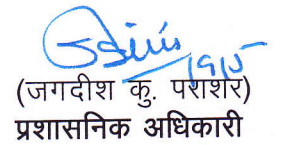 19/5
(जगदीश कु. पराशर)
प्रशासनिक अधिकारी